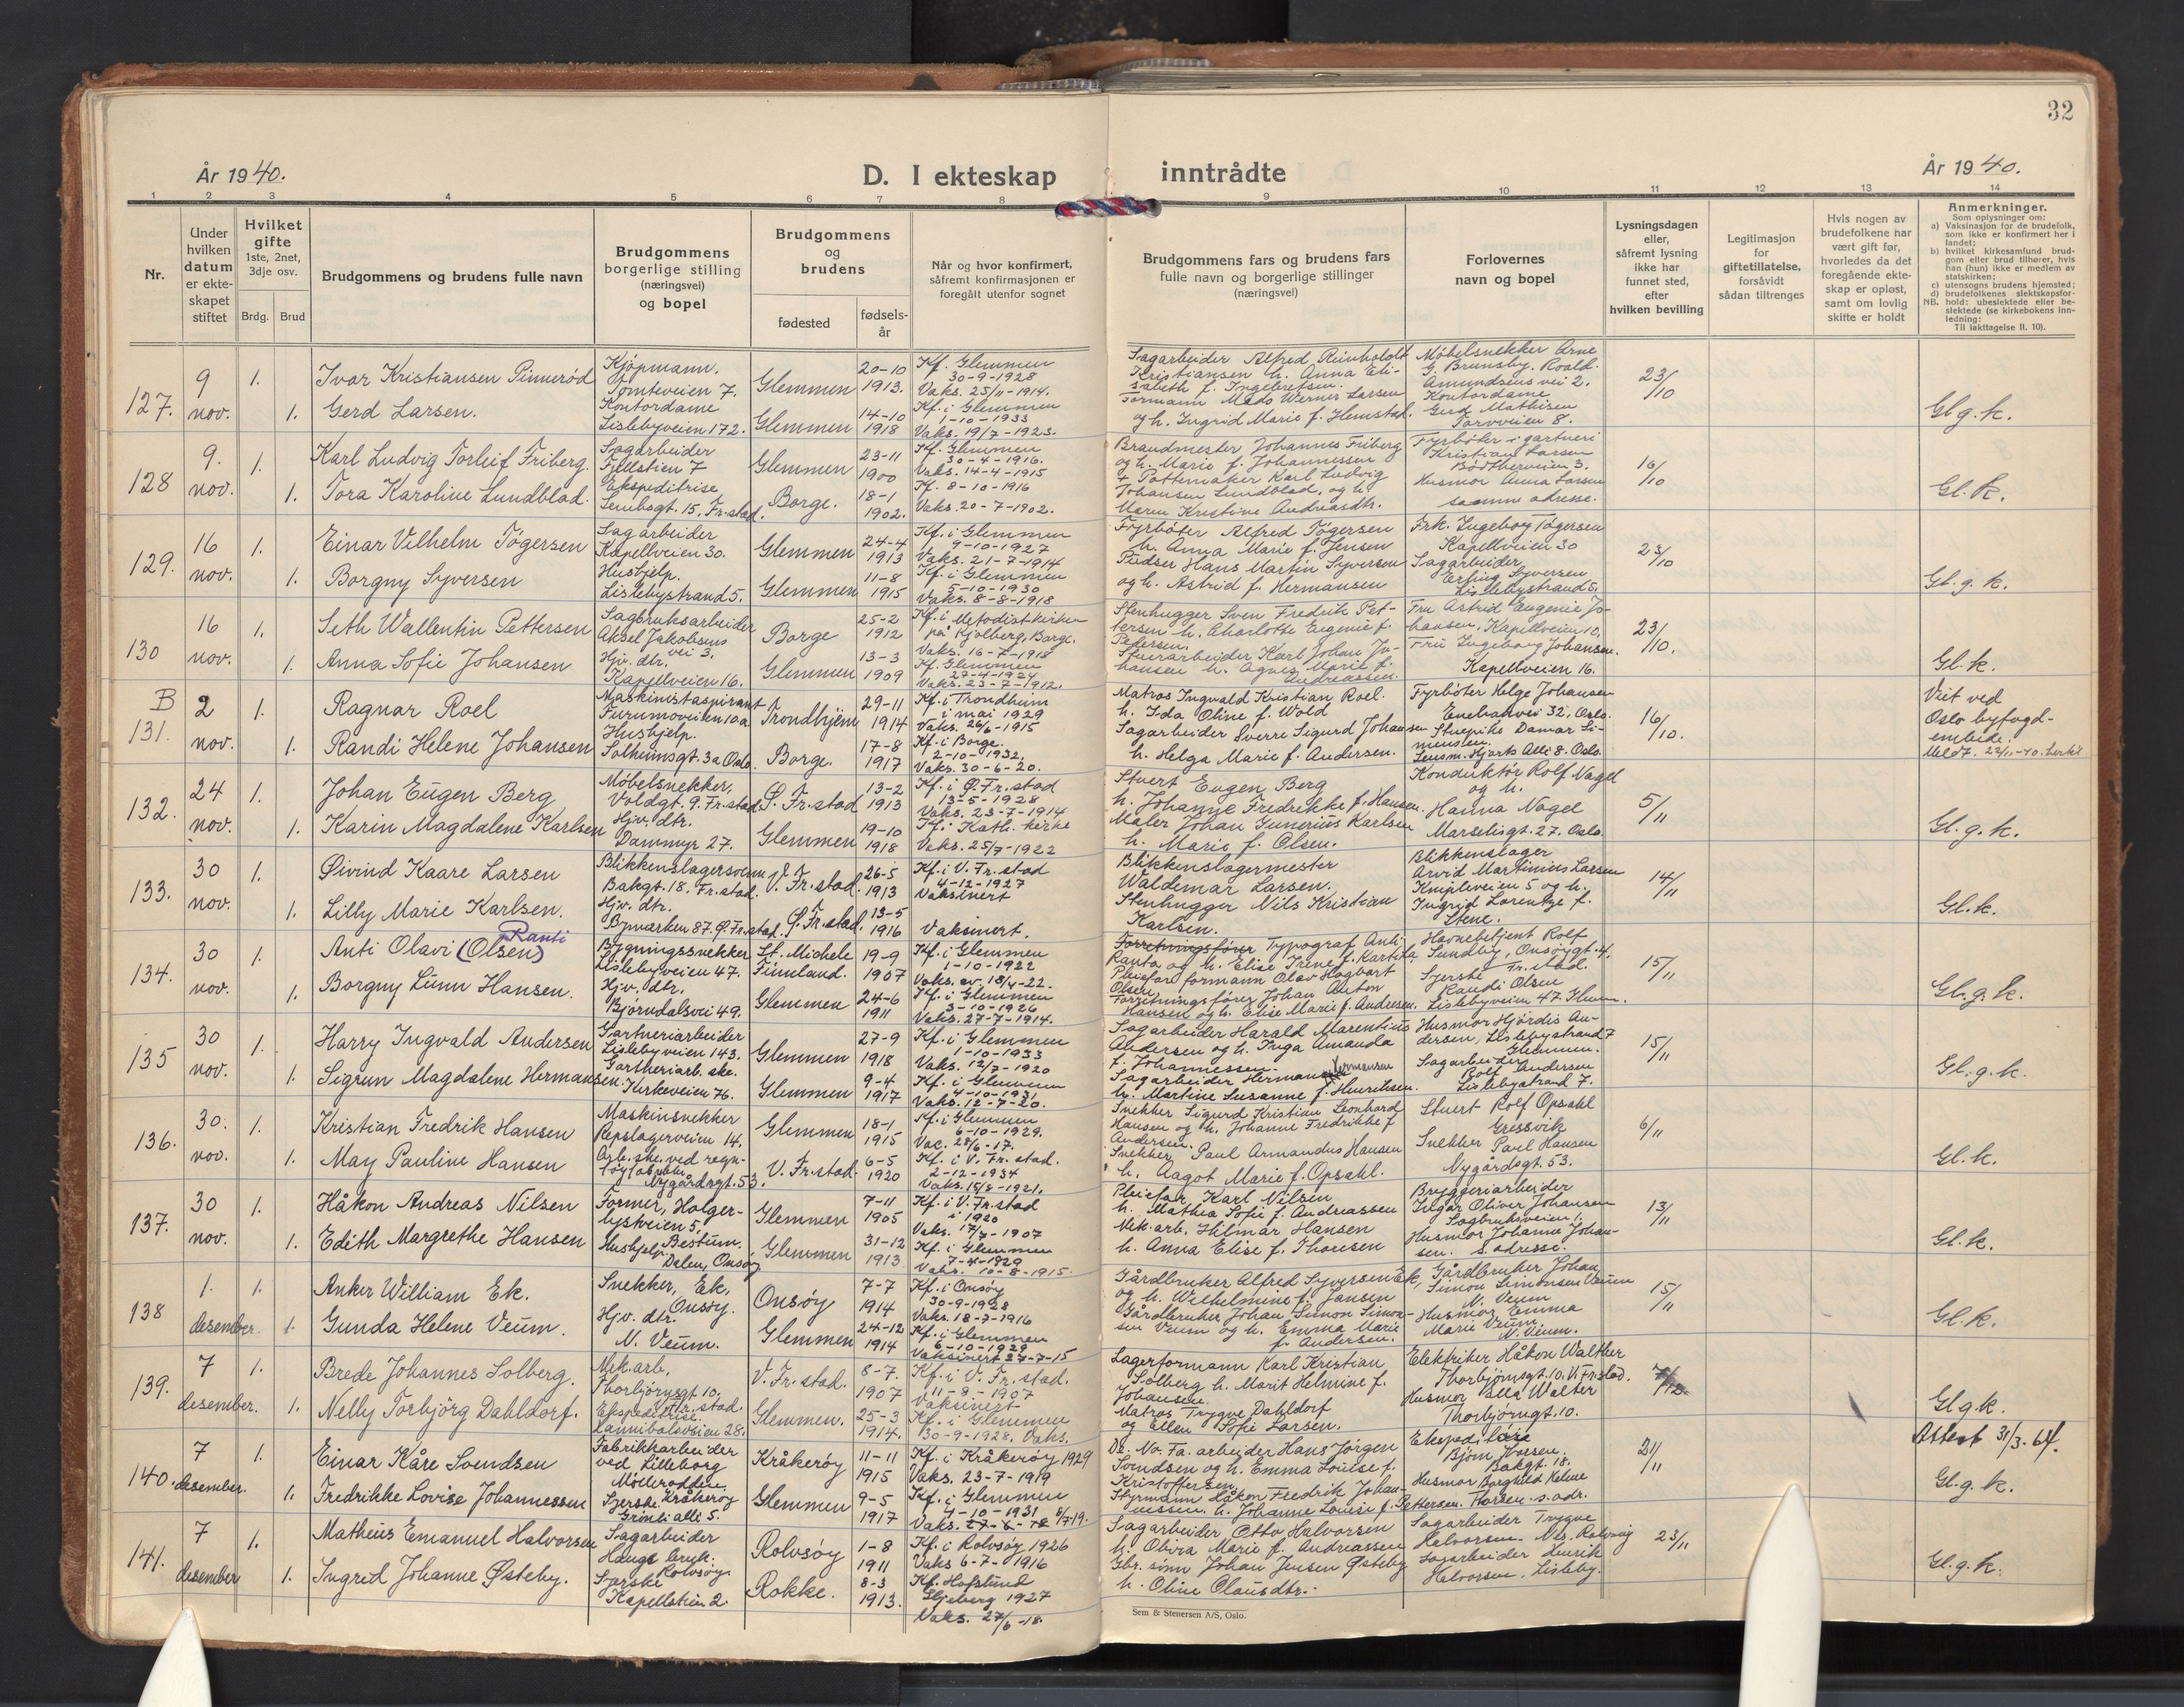 32
År 1940.
D. I ekteskap inntrådte
År 1940.
1 2 3 4 5 6 7 8 9 10 11 12 13 14
Nr.
Under hvilken datum er ekte-skapet stiftet
Hvilket gifte 1ste, 2net, 3dje osv.
Brdg. Brud
Brudgommens og brudens fulle navn
Brudgommens borgerlige stilling (næringsvei) og bopel
Brudgommens og brudens
fødested
fødsels-år
Når og hvor konfirmert, såfremt konfirmasjonen er foregått utenfor sognet
Brudgommens fars og brudens fars fulle navn og borgerlige stillinger (næringsvei)
Forlovernes navn og bopel
Lysningsdagen eller, såfremt lysning ikke har funnet sted, efter hvilken bevilling
Legitimasjon for giftetillatelse, forsåvidt sådan tiltrenges
Hvis nogen av brudefolkene har vært gift før, hvorledes da det foregående ekte-skap er opløst, samt om lovlig skifte er holdt
Anmerkninger.
Som oplysninger om:
a) Vaksinasjon for de brudefolk, som ikke er konfirmert her i landet;
b) hvilket kirkesamfund brud-gom eller brud tilhører, hvis han (hun) ikke er medlem av statskirken;
c) utensogns brudens hjemsted;
d) brudefolkenes slektskapsfor-hold: ubeslektede eller be-slektede (se kirkebokens inn-ledning:
NB. Til iakttagelse II. 10).
127. 9 nov. 1. Ivar Kristiansen Pinnerød
Kjøpmann, Tomteveien 7. Glemmen 20-10 1913. Kf. Glemmen 30-9-1928 Vaks. 25/11-1914.
1. Gerd Larsen.
Kontordame Lislebyveien 172. Glemmen 14-10 1918 Kf. i Glemmen 1-10-1933 Vaks. 19/7-1923.
Sagarbeider Alfred Reinholdt Kristiansen h. Anna Eli-sabeth f. Ingebretsen.
Formann Mads Werner Larsen og h. Ingrid Marie f. Hemstad.
Møbelsnekker Arne G. Brunsby. Roald Amundsens vei 2.
Kontordame Gerd Mathisen Torvveien 8.
23/10 Gl.g.k.
128 9. nov. 1. Karl Ludvig Torleif Friberg.
Sagarbeider Fjellstien 7 Glemmen 23-11 1900 Kf. Glemmen 30-4-1916. Vaks. 14-4-1915
1. Tora Karoline Lundblad.
Ekspeditrise 15, Fr.stad. Borge. 18-1 1902. Kf. 8-10-1916 Vaks. 20-7-1902.
Brandmester Johannes Friberg og h. Marie f. Johannessen
+ Pottemaker Karl Ludvig Johansen Lundblad, og h. Maren Kristine Andreasdtr.
Fyrbøter i gartneri Kristian Larsen 3.
Husmor Anna Larsen samme adresse.
16/10 Gl.k.
129. 16 nov. 1. Einar Vilhelm Tøgersen
Sagarbeider Kapellveien 30. Glemmen 24-4 1913 Kf. i Glemmen 9-10-1927 Vaks. 21-7-1914
1. Borgny Syversen
Hushjelp. Lislebystrand 5. Glemmen 11-8 1915 Kf. i Glemmen 5-10-1930 Vaks. 8-8-1918
Fyrbøter Alfred Tøgersen h. Anna Marie f. Jensen
Pudser Hans Martin Syversen og h. Astrid f. Hermansen
Frk. Ingeborg Tøgersen Kapellveien 30
Sagarbeider Erling Syversen Lislebystrand 5.
23/10 Gl.g.k.
130 16 nov. 1. Seth Wallentin Pettersen
Sagbruksarbeider Aksel Jakobsens vei 3. Borge 25-2 1912 Kf. i Metodistkirken på Kjølberg, Borge. Vaks. 16-7-1918
1. Anna Sofie Johansen
Hjv. dtr. Kapellveien 16. Glemmen 13-3 1909 Kf. Glemmen 27-4-1924 Vaks. 23-7-1912.
Stenhugger Sven Fredrik Pet-tersen h. Charlotte Eugenie f. Pedersen.
Karl Johan Jo-hansen h. Agnes Marie f. Andreassen.
Fru Astrid Eugenie Jo-hansen, Kapellveien 10.
Fru Ingeborg Johansen. Kapellveien 16.
23/10. Gl.k.
B 131. 2 nov. 1. Ragnar Roel
Maskinistaspirant Furumoveien 10a. Trondhjem 29-11 1914 Kf. i Trondheim i mai 1929 Vaks. 26/6-1915
1. Randi Helene Johansen
Hushjelp. Solheimsgt. 3a Oslo. Borge. 17-8 1917 Kf. i Borge. 2-10-1932, Vaks. 30-6-20.
Matros Ingvald Kristian Roel. h. Ida Oline f. Wold
Sagarbeider Sverre Sigurd Johansen h. Helga Marie f. Andersen.
Fyrbøter Helge Johansen Enebakvei 32, Oslo.
Stuepike Damar Si-monsen. Lensm. Hjorts Allé 8. Oslo.
16/10. Viet ved Oslo byfogd-embede. Meldt. 22/11-40.
132. 24 nov. 1. Johan Eugen Berg
Møbelsnekker, Voldgt. 9. Fr.stad. Ø. Fr.stad 13-2 1913 Kf. i Ø. Fr.stad 13-5-1928 Vaks. 23-7-1914
1. Karin Magdalene Karlsen
Hjv. dtr. Dammyr 27. Glemmen 19-10 1918 Kf. i Kath. kirke Vaks. 25/7-1922
Stuert Eugen Berg h. Johanne Fredrekke f. Hansen.
Maler Johan Gunerius Karlsen h. Marie f. Olsen.
Konduktør Rolf Nagel og h. Hanna Nagel Marseliisgt. 27. Oslo.
5/11 Gl.g.k.
133. 30 nov. 1. Øivind Kaare Larsen
Blikkenslagersvenn Bakgt. 18. Fr.stad. V. Fr.stad. 26-5 1913 Kf. i V. Fr.stad 4-12-1927 Vaksinert
1. Lilly Marie Karlsen.
Hjv. dtr. Bjmarken 87. Ø. Fr.stad. Ø. Fr.stad. 13-5 1916 Vaksinert.
Blikkenslagermester Waldemar Larsen.
Stenhugger Nils Kristian Karlsen.
Blikkenslager Arvid Martinius Larsen Knipleveien 5 og h. Ingrid Lorentze f. Stene.
14/11 Gl.k.
134. 30 nov. 1. Anti Olavi (Olsen) Ranti
Bygningssnekker Lislebyveien 47. St. Michele Finnland. 19-9 1907 Kf. i Glemmen 1-10-1922 Vaks. av 18/4-22.
1. Borgny Linn Hansen.
Hjv. dtr. Bjørndalsvei 49. Glemmen 24-6 1911 Kf. i Glemmen 3-10-1926 Vaks. 27-7-1914.
Forretningsfører Typograf Anti Ranta og h. Elise Irene f. Kartila
Pleiefar formann Olav Hagbart Olsen
Forretningsfører Johan Anton Hansen og h. Elise Marie f. Andersen.
Havnebetjent Rolf Sundby, Onsøygt. 4. Fr.stad.
Syerske Randi Olsen Lislebyveien 47. Glemm.
15/11 Gl.g.k.
135 30 nov. 1. Harry Ingvald Andersen
Gartneriarbeider Lislebyveien 143. Glemmen 27-9 1918 Kf. i Glemmen 1-10-1933 Vaks. 12/7-1920
1. Sigrun Magdalene Hermansen
Gartneriarb. ske. Kirkeveien 76. Glemmen 9-4 1917 Kf. i Glemmen 4-10-1931 Vaks. 12-7-20.
Sagarbeider Harald Marentius Andersen og h. Inga Amanda f. Johannessen.
Sagarbeider Herman Hermansen h. Martine Susanne f. Henriksen.
Husmor Hjørdis An-dersen, Lislebystrand 7 Glemmen.
Sagarbeider Rolf Andersen Lislebystrand 7.
15/11 Gl.g.k.
136. 30. nov. 1. Kristian Fredrik Hansen
Maskinsnekker Repslagerveien 14. Glemmen 18-1 1915 Kf. i Glemmen 6-10-1929. Vac. 28/6-17.
1. May Pauline Hansen
Arb. ske. ved regn-tøifabrikken Nygårdsgt. 53. V. Fr.stad. 6-5 1920 Kf. i V. Fr.stad. 2-12-1934 Vaks. 15/8-1921.
Snekker Sigurd Kristian Leonhard Hansen og h. Johanne Fredrikke f Andersen.
Snekker Paul Armandus Hansen h. Aagot Marie f. Opsahl.
Stuert Rolf Opsahl Gressvik
Snekker Paul Hansen Nygårdsgt. 53.
6/11 Gl.k.
137. 30 nov. 1. Håkon Andreas Nilsen
Former, Holger-lystveien 5. Glemmen 7-11 1905 Kf. i V. Fr.stad i 1920 Vaks. 17/7-1907
1. Edith Margrethe Hansen
Hushjelp Bestum. Dalen, Onsøy Glemmen 31-12 1913 Kf. i Glemmen 7-4-1929 Vaks. 10-8-1915.
Pleiefar Karl Nilsen h. Mathea Sofie f. Andreassen
Mek. arb. Hilmar Hansen h. Anna Elise f. Thoresen
Bryggeriarbeider Ingar Oliver Johansen Sagbruksveien 1.
Husmor Johanne Johan-sen. s. adresse.
13/11 Gl.k.
138 1. desember. 1. Anker William Ek.
Snekker, Ek, Onsøy. Onsøy 7-7 1914 Kf. i Onsøy 30-9-1928 Vaks. 18-7-1916
1. Gunda Helene Veum.
Hjv. dtr. N. Veum. Glemmen 24-12 1914 Kf. i Glemmen 6-10-1929 Vaksinert 27-7-15
Gårdbruker Alfred Syversen Ek, og h. Wilhelmine f. Jansen
Gårdbruker Johan Simon Simon-sen Veum og h. Emma Marie f. Andersen.
Gårdbruker Johan Simon Simonsen Veum N. Veum
Husmor Emma Marie Veum N. Veum.
15/11 Gl.k.
139. 7 desember. 1. Brede Johannes Solberg.
Mek. arb. Thorbjørnsgt. 10. V. Fr.stad. V. Fr.stad. 8-7. 1907 Kf. i V. Fr.stad. 11-8-1907 Vaksinert
1. Nelly Torbjörg Dahldorf.
Ekspeditrise. Hannibalsveien 28. Glemmen. 25-3 1914. Kf. i Glemmen 30-9-1928. Vaks.
Lagerformann Karl Kristian Solberg h. Marit Helmine f. Johansen.
Matros Trygve Dahldorf og Ellen Sofie Larsen.
Elektriker Håkon Walther Thorbjørnsgt. 10. V. Fr.stad.
Husmor Ella Walter Thorbjørngt. 10.
7/12. Gl.g.k.
Attest 31/3-64.
140. 7 desember. 1. Einar Kåre Svendsen
Fabrikkarbeider ved Lilleborg Mølleodden Kråkerøy Kråkerøy 11-11 1915 Kf. i Kråkerøy 1929 Vaks. 23-7-1919
1. Fredrikke Lovise Johannessen
Syerske Grønli allé 5. Glemmen 9-5 1917 Kf. i Glemmen 4-10-1931 Vaks. 27-6-18 8/7-19.
De. No. Fa. arbeider Hans Jørgen Svendsen og h. Emma Louise f. Kristoffersen.
Styrmann Håkon Fredrik Johan-nessen h. Johanne Louise f. Pettersen.
Ekspeditør Bjørn Bakgt. 18.
Husmor Borghild Thorsen. s. adr.
21/11 Gl.g.k.
141. 7 desember 1. Matheus Emanuel Halvorsen
Sagarbeider Hauge bruk. Rolvsøy Rolvsøy 1-8 1911 Kf. i Rolvsøy 1926 Vaks 6-7-1916
1. Ingrid Johanne Østeby.
Syerske Kapellstien 2. Rokke. 8-3 1913. Kf. Hafslund Skjeberg 1927 Vaks. 27/6-18.
Sagarbeider Otto Halvorsen h. Olivia Marie f. Andreassen
Gbr. sønn Johan Jensen Østeby h. Oline Olausdtr.
Sagarbeider Trygve Halvorsen. Nes. Rolvsøy
Sagarbeider Henrik Halvorsen. Lisleby.
23/11 Gl.g.k.
Sem & Stenersen A/S, Oslo.